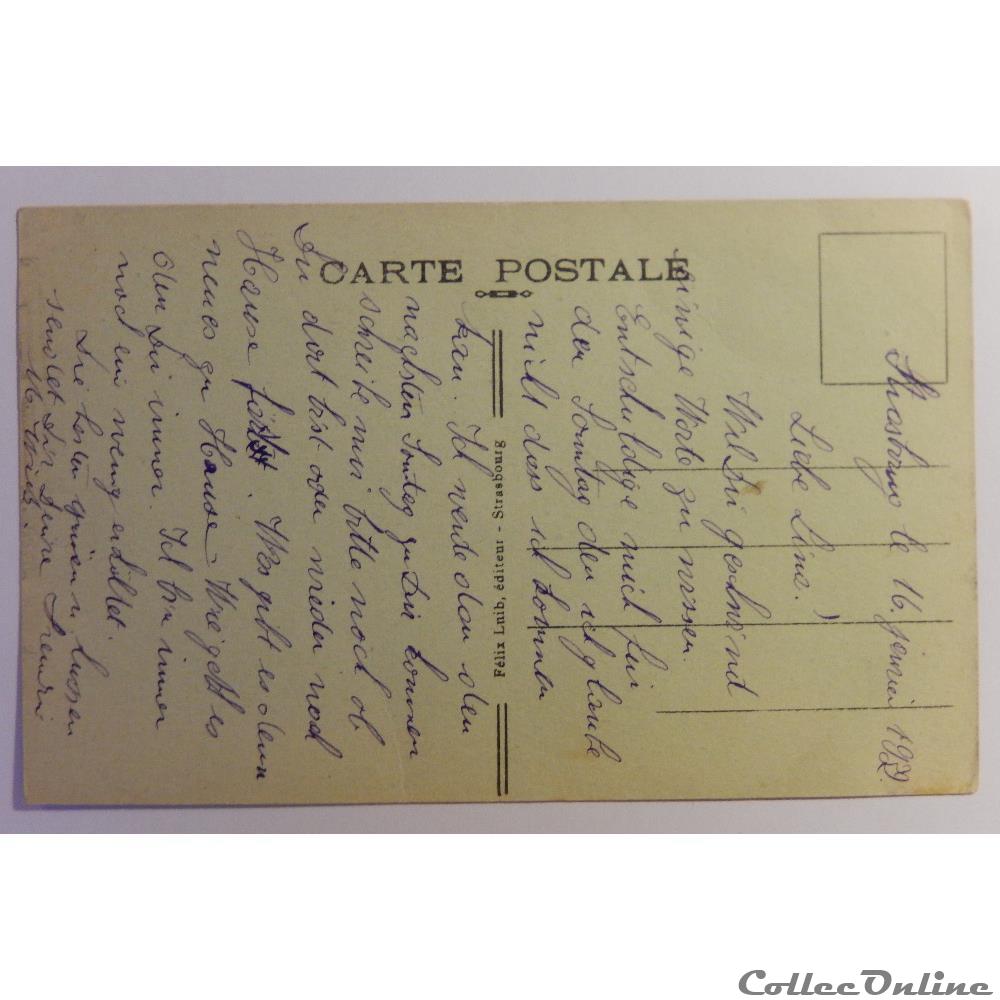 CARTE POSTALE
Félix Luib, éditeur - Strasbourg
le 16. janvier
Liebe Line!
Will Dir geschwind
einige Worte zu wissen.
Entschuldige mich für
den Sonntag den ich glaubte
nicht dass ich kommen
kan. Ich werde dan den
nachsten Sontag zu Dir kommen
schreibe mir bitte noch ob
Du dort bist oder wieder nach
Hause. Was gebt es denn
neues zu Hause. Wie geht es
den Dir immer. Ich bin immer
noch ein wenig erkältet.
Die besten grüsse u. Küssen
sendet Dir Deine
CollecOnline